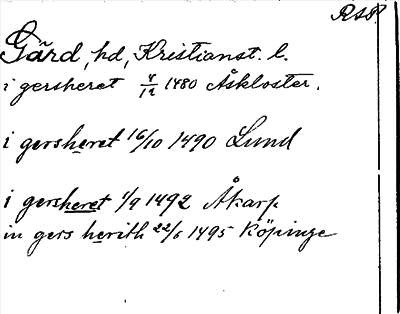 RAP.
Gärd, hd, Kristianst. l.
i gersheret 4/12 1480 Åskloster.
i gersheret 16/10 1490 Lund
i gersheret 1/9 1492 Åkarp
in gers herith 22/6 1495 Köpinge